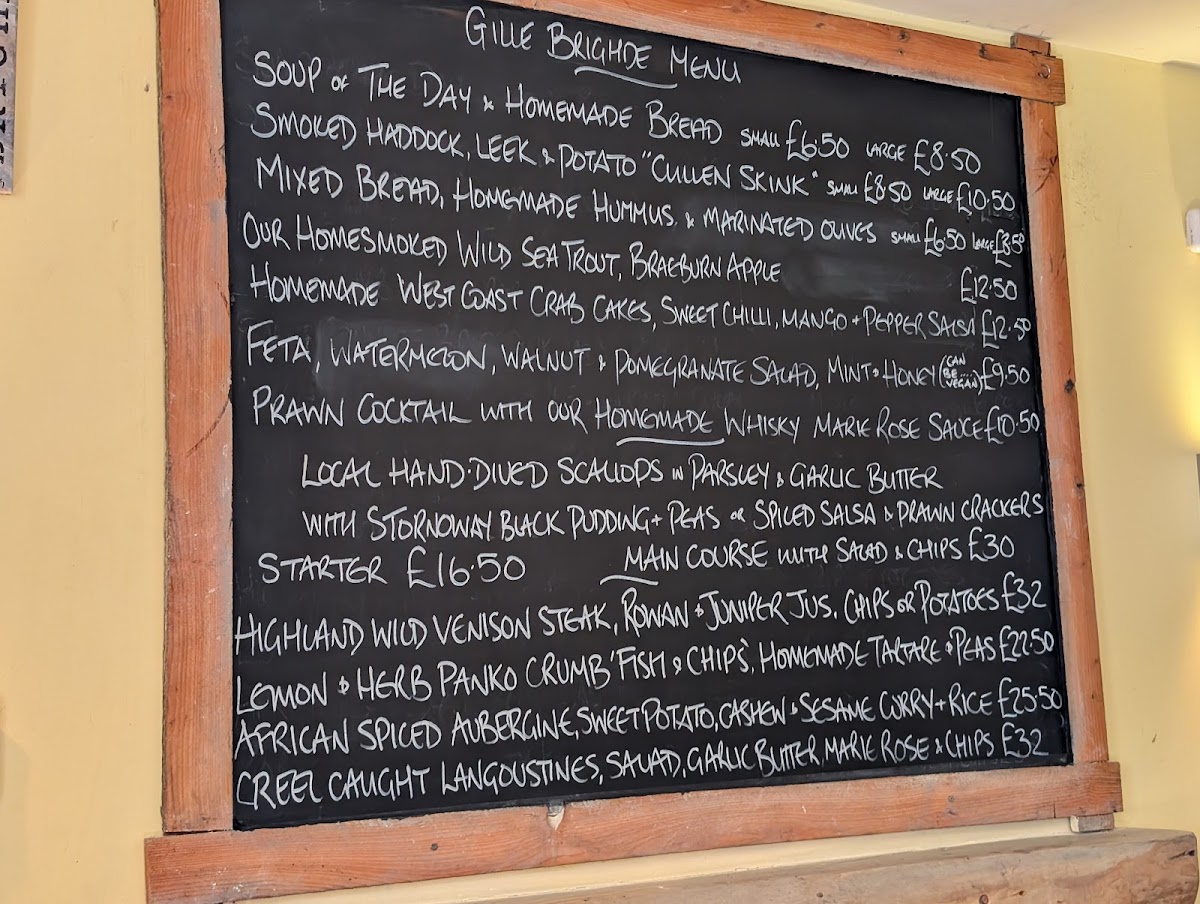 GILLE BRIGHDE MENU
SOUP OF THE DAY & HOMEMADE BREAD SMALL £6.50 LARGE £8.50
SMOKED HADDOCK, LEEK & POTATO "CULLEN SKINK" SMALL £8.50 LARGE £10.50
MIXED BREAD, HOMEMADE HUMMUS, & MARINATED OLIVES SMALL £6.50 LARGE £8.50
OUR HOMESMOKED WILD SEA TROUT, BRAEBURN APPLE £12.50
HOMEMADE WEST COAST CRAB CAKES, SWEET CHILLI, MANGO + PEPPER SALSA £12.50
FETA, WATERMELON, WALNUT & POMEGRANATE SALAD, MINT & HONEY (CAN BE.... VEGAN) £9.50
PRAWN COCKTAIL WITH OUR HOMEMADE WHISKY MARIE ROSE SAUCE £10.50
LOCAL HAND-DIVED SCALLOPS IN PARSLEY & GARLIC BUTTER
WITH STORNOWAY BLACK PUDDING + PEAS OR SPICED SALSA & PRAWN CRACKERS
STARTER £16.50 MAIN COURSE WITH SALAD & CHIPS £30
HIGHLAND WILD VENISON STEAK, ROWAN & JUNIPER JUS. CHIPS OR POTATOES £32
LEMON & HERB PANKO CRUMB 'FISH & CHIPS', HOMEMADE TARTARE & PEAS £22.50
AFRICAN SPICED AUBERGINE, SWEET POTATO, CASHEW & SESAME CURRY + RICE £25.50
CREEL CAUGHT LANGOUSTINES, SALAD, GARLIC BUTTER, MARIE ROSE & CHIPS £32